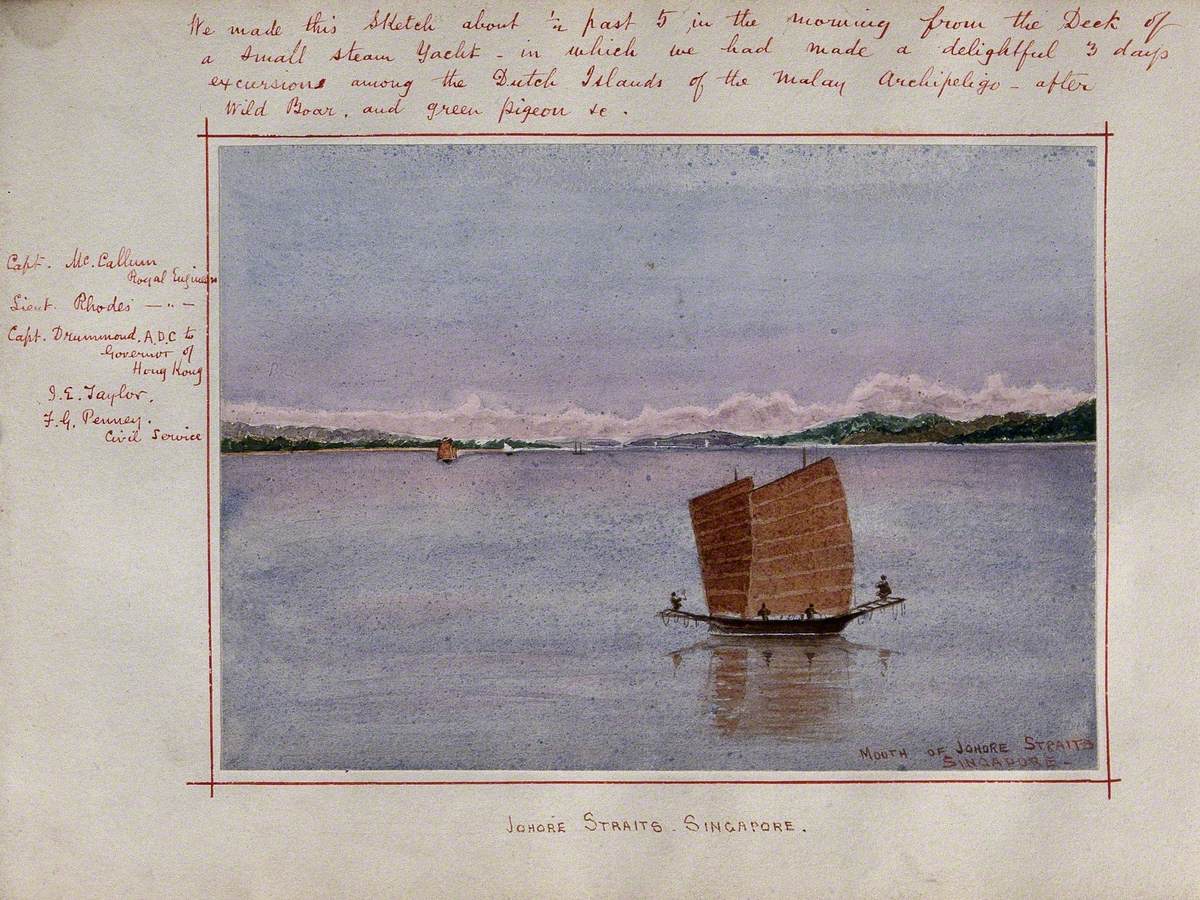 We made this Sketch about ½ past 5, in the morning from the Deck of
a small steam Yacht - in which we had made a delightful 3 days
excursions among the Dutch Islands of the Malay Archipeligo - after
Wild Boar, and green pigeon &c.
Capt. Mc. Callum
Royal Engineers
Lieut. Rhodes — " —
Capt. Drummond, A.D.C to
Governor of
Hong Kong
I. E. Taylor.
F. G. Penney.
Civil Service
MOUTH OF JOHORE STRAITS
SINGAPORE -
JOHORE STRAITS - SINGAPORE.